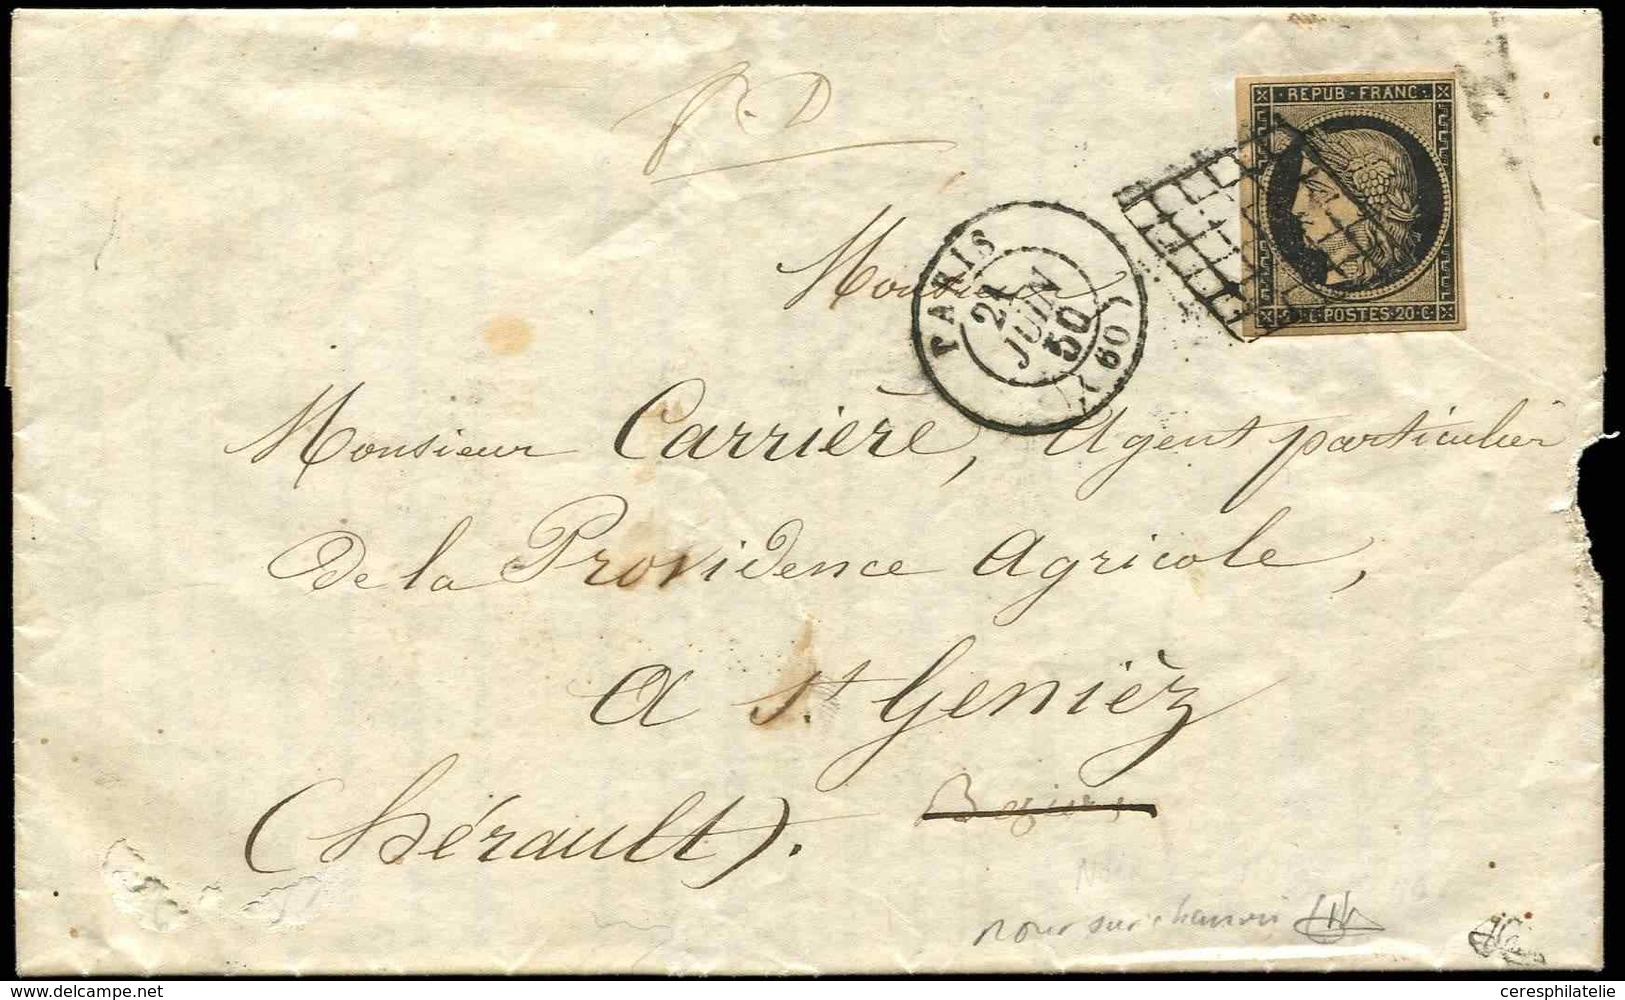 P. D
REPUB · FRANC ·
20 · C · POSTES · 20 · C ·
PARIS
21
JUIN
50
(60)
Monsieur
Monsieur Carrière, Agent particulier
de la Providence Agricole,
a St. Genièz
(hérault).
noir sur chamois
© www.delcampe.net
ceresphilatelie